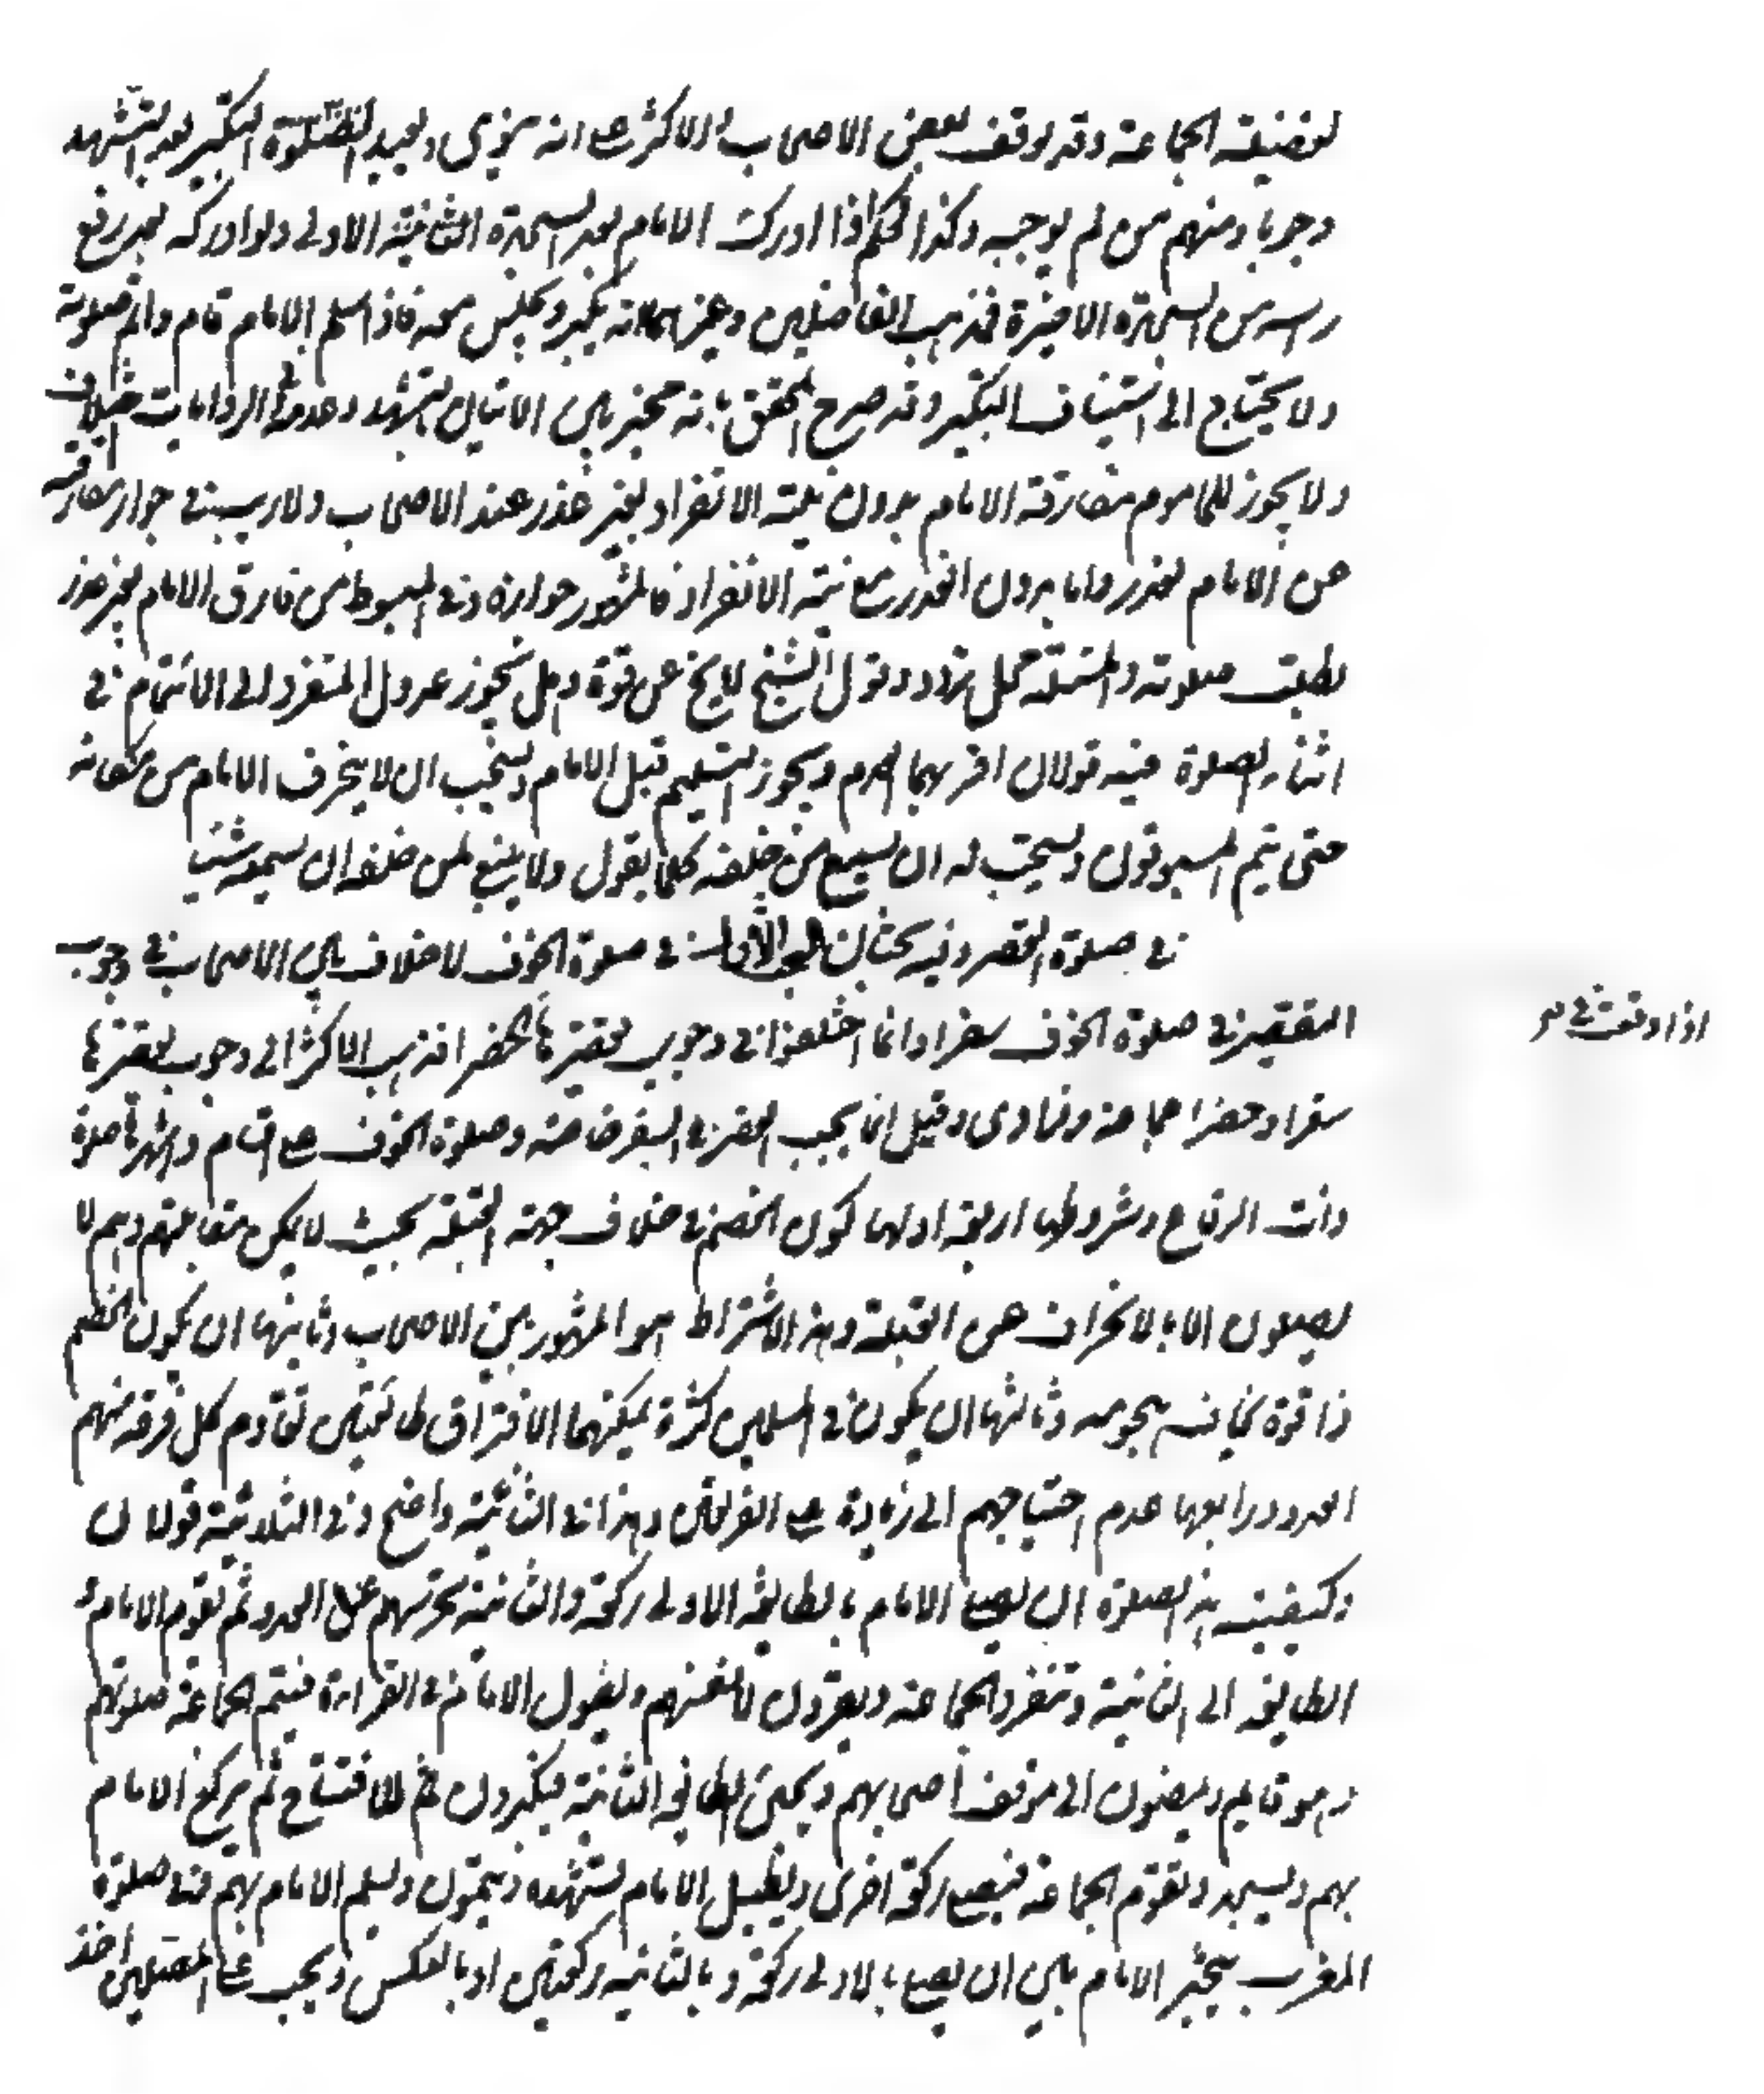 لفضيلة الجماعة وقد توقف بعض الاصحاب والاكثر على انه ينوى ويعيد النية للصلوة التكبير بعد التشهد
وجوبا ومنهم من لم يوجبه وكذا الحكم اذا ادرك الامام بعد السجدة الثانية الاولى ولو ادركه بعد رفع
راسه من السجدة الاخيرة فمذهب الفاضلين وغيرهما انه يكبر ويجلس معه فاذا سلم الامام قام واتم صلوته
ولا يحتاج الى استيناف التكبير وقد صرح المحقق بانه مخير بين الاتيان بالتشهد وعدمه الروايات
ولا يجوز للماموم مفارقة الامام بدون نية الانفراد لغير عذر عند الاصحاب ولا ريب في جواز مفارقة
عن الامام لعذر واما بدون العذر مع نية الانفراد فالمشهور جوازه وفى المبسوط من فارق الامام لغير عذر
بطلت صلوته والمسئلة محل تردد وقول الشيخ لا يخ عن قوة وهل يجوز عدول المنفرد الى الائتمام فى
اثناء الصلوة فيه قولان اقربهما العدم ويجوز التسليم قبل الامام ويستحب ان لا ينحرف الامام من مكانه
حتى يتم المسبوقون ويستحب له ان يسمع من خلفه كلما يقول ولا ينبغ لمن خلفه ان يسمعه شيئا
فى صلوة القصر وفيه بحثان البحث الاول فى صلوة الخوف لا خلاف بين الاصحاب فى وجوب
التقصير فى صلوة الخوف سفرا وانما اختلفوا فى وجوب تقصيرها حضرا فذهب الاكثر الى وجوب تقصيرها
اذا وقعت فى
سفرا وحضرا جماعة وفرادى وقيل انما يجب القصر فى السفر خاصة وصلوة الخوف على اقسام واشهرها صلوة
ذات الرقاع وشروطها اربعة اولها كون الخصم فى خلاف جهة القبلة بحيث لا يمكن مقابلتهم وهم لا
يصلون الا بالانحراف عن القبلة وهذا الاشتراط هو المشهور بين الاصحاب وثانيها ان يكون الخصم
ذا قوة يخاف هجومه وثالثها ان يكون فى المسلمين كثرة يمكنهم الافتراق طائفتين تقاوم كل فرقة منهم
العدو ورابعها عدم احتياجهم الى زيادة على الفرقتين وهذا فى الثنائية واضح وفى الثلاثية قولان
وكيفية هذه الصلوة ان يصلى الامام بالطايفة الاولى ركعة والثانية تحرسهم عن العدو ثم يقوم الامام و
الطايفة الى الثانية وتنفرد الجماعة ويقرؤن لانفسهم ويطول الامام فى القراءة فيتم الجماعة صلوتهم
وهو قايم ويمضون الى موقف اصحابهم ويجيئ الطايفة الثانية فيكبرون للافتتاح ثم يركع الامام
بهم ويسجد وتقوم الجماعة فيصلى ركعة اخرى ويطيل الامام تشهده ويتمون ويسلم الامام بهم وفى صلوة
المغرب يتخير الامام بين ان يصلى بالاولى ركعة وبالثانية ركعتين او بالعكس ويجب على المصلين اخذ